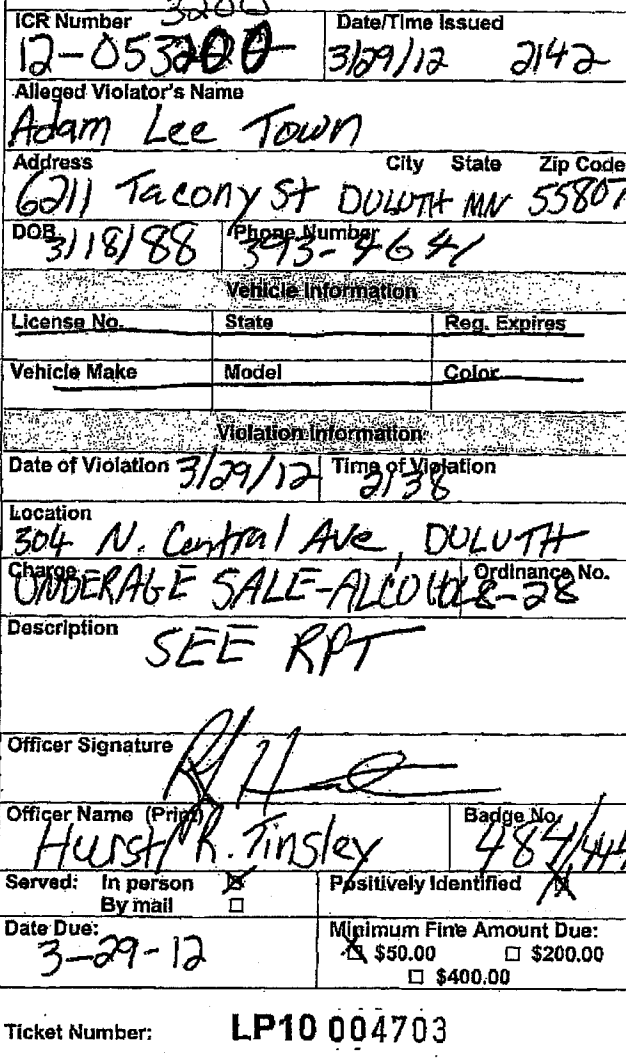 3200
ICR Number Date/Time Issued
12-053200 3/29/12 2142
Alleged Violator's Name
Adam Lee Town
Address City State Zip Code
6211 Tacony St DULUTH MN 55807
DOB Phone Number
3/18/88 393-4641
Vehicle Information
License No. State Reg. Expires
Vehicle Make Model Color
Violation Information
Date of Violation 3/29/12 Time of Violation
2138
Location
304 N. Central Ave, DULUTH
Charge Ordinance No.
UNDERAGE SALE-ALCOHOL 8-28
Description
SEE RPT
Officer Signature
Officer Name (Print) Badge No.
Hurst/R. Tinsley 484/444
Served: In person Positively Identified
By mail
Date Due: Minimum Fine Amount Due:
3-29-12 $50.00 $200.00
$400.00
Ticket Number: LP10 004703